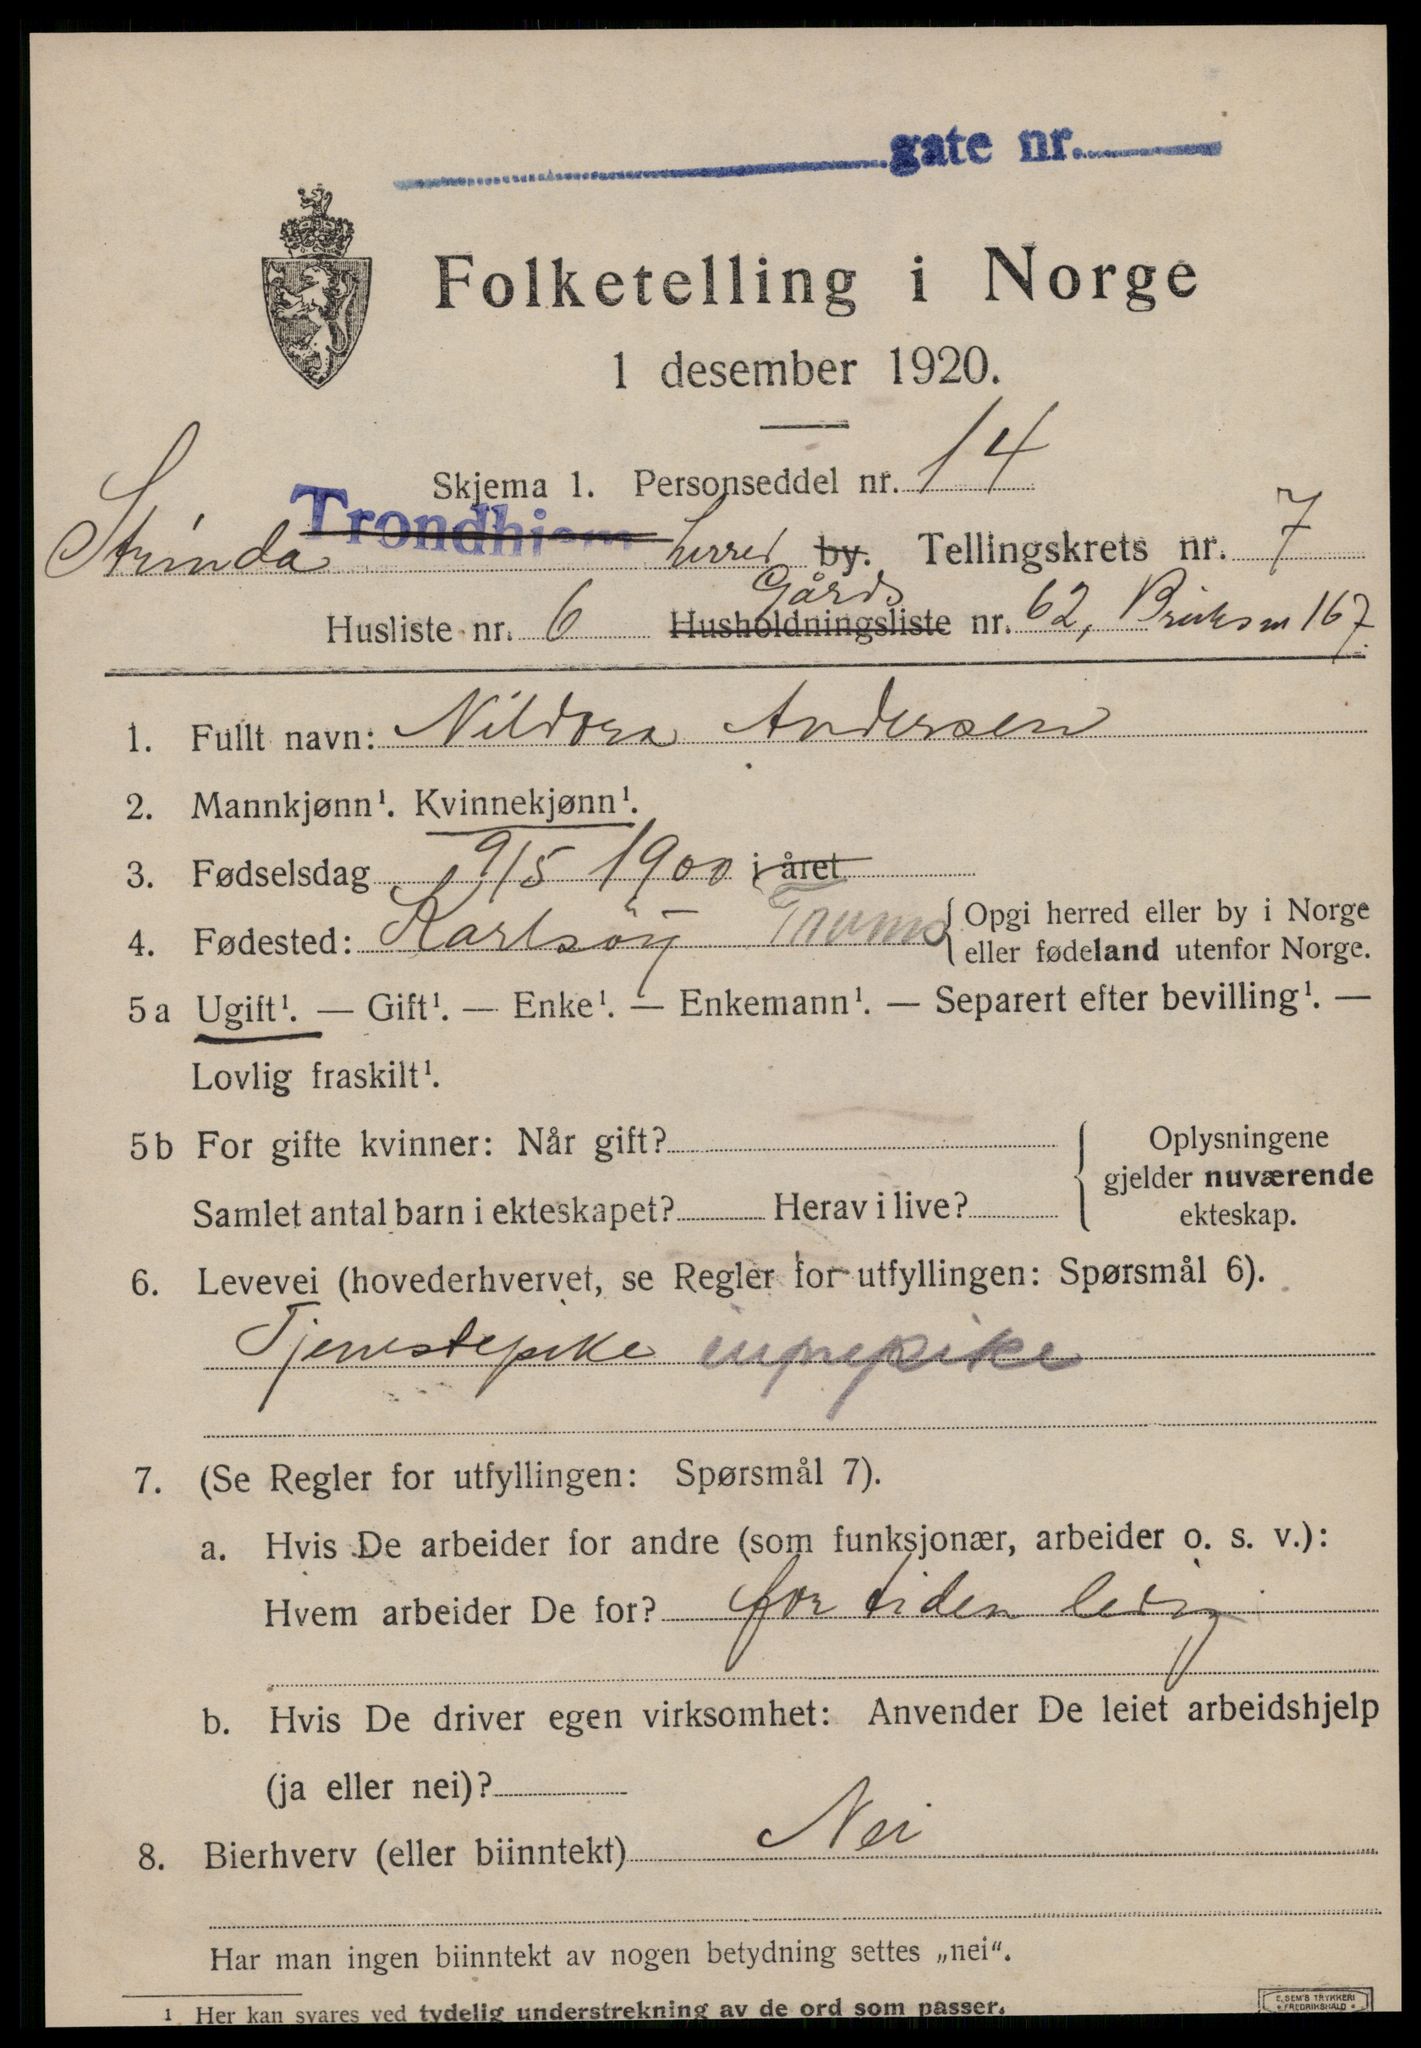 gate nr.
Folketelling i Norge
1 desember 1920.
Skjema 1. Personseddel nr. 14
Strinda Trondhjem herred by. Tellingskrets nr. 7
Gårds
Husliste nr. 6 Husholdningsliste nr. 62, Bruksnr 167.
1. Fullt navn: Nildora Andersen
2. Mannkjønn¹. Kvinnekjønn¹.
3. Fødselsdag 9/5 1900 i året
4. Fødested: Karlsöy Troms { Opgi herred eller by i Norge
eller fødeland utenfor Norge.
5a Ugift¹. — Gift¹. — Enke¹. — Enkemann¹. — Separert efter bevilling¹. —
Lovlig fraskilt¹.
5b For gifte kvinner: Når gift? { Oplysningene
gjelder nuværende
Samlet antal barn i ekteskapet? Herav i live? ekteskap.
6. Levevei (hovederhvervet, se Regler for utfyllingen: Spørsmål 6).
Tjenestepike
7. (Se Regler for utfyllingen: Spørsmål 7).
a. Hvis De arbeider for andre (som funksjonær, arbeider o. s. v.):
Hvem arbeider De for? for tiden ledig
b. Hvis De driver egen virksomhet: Anvender De leiet arbeidshjelp
(ja eller nei)?
8. Bierhverv (eller biinntekt) Nei
Har man ingen biinntekt av nogen betydning settes „nei“.
1 Her kan svares ved tydelig understrekning av de ord som passer.
E. SEM'S TRYKKERI
• FREDRIKSHALD •